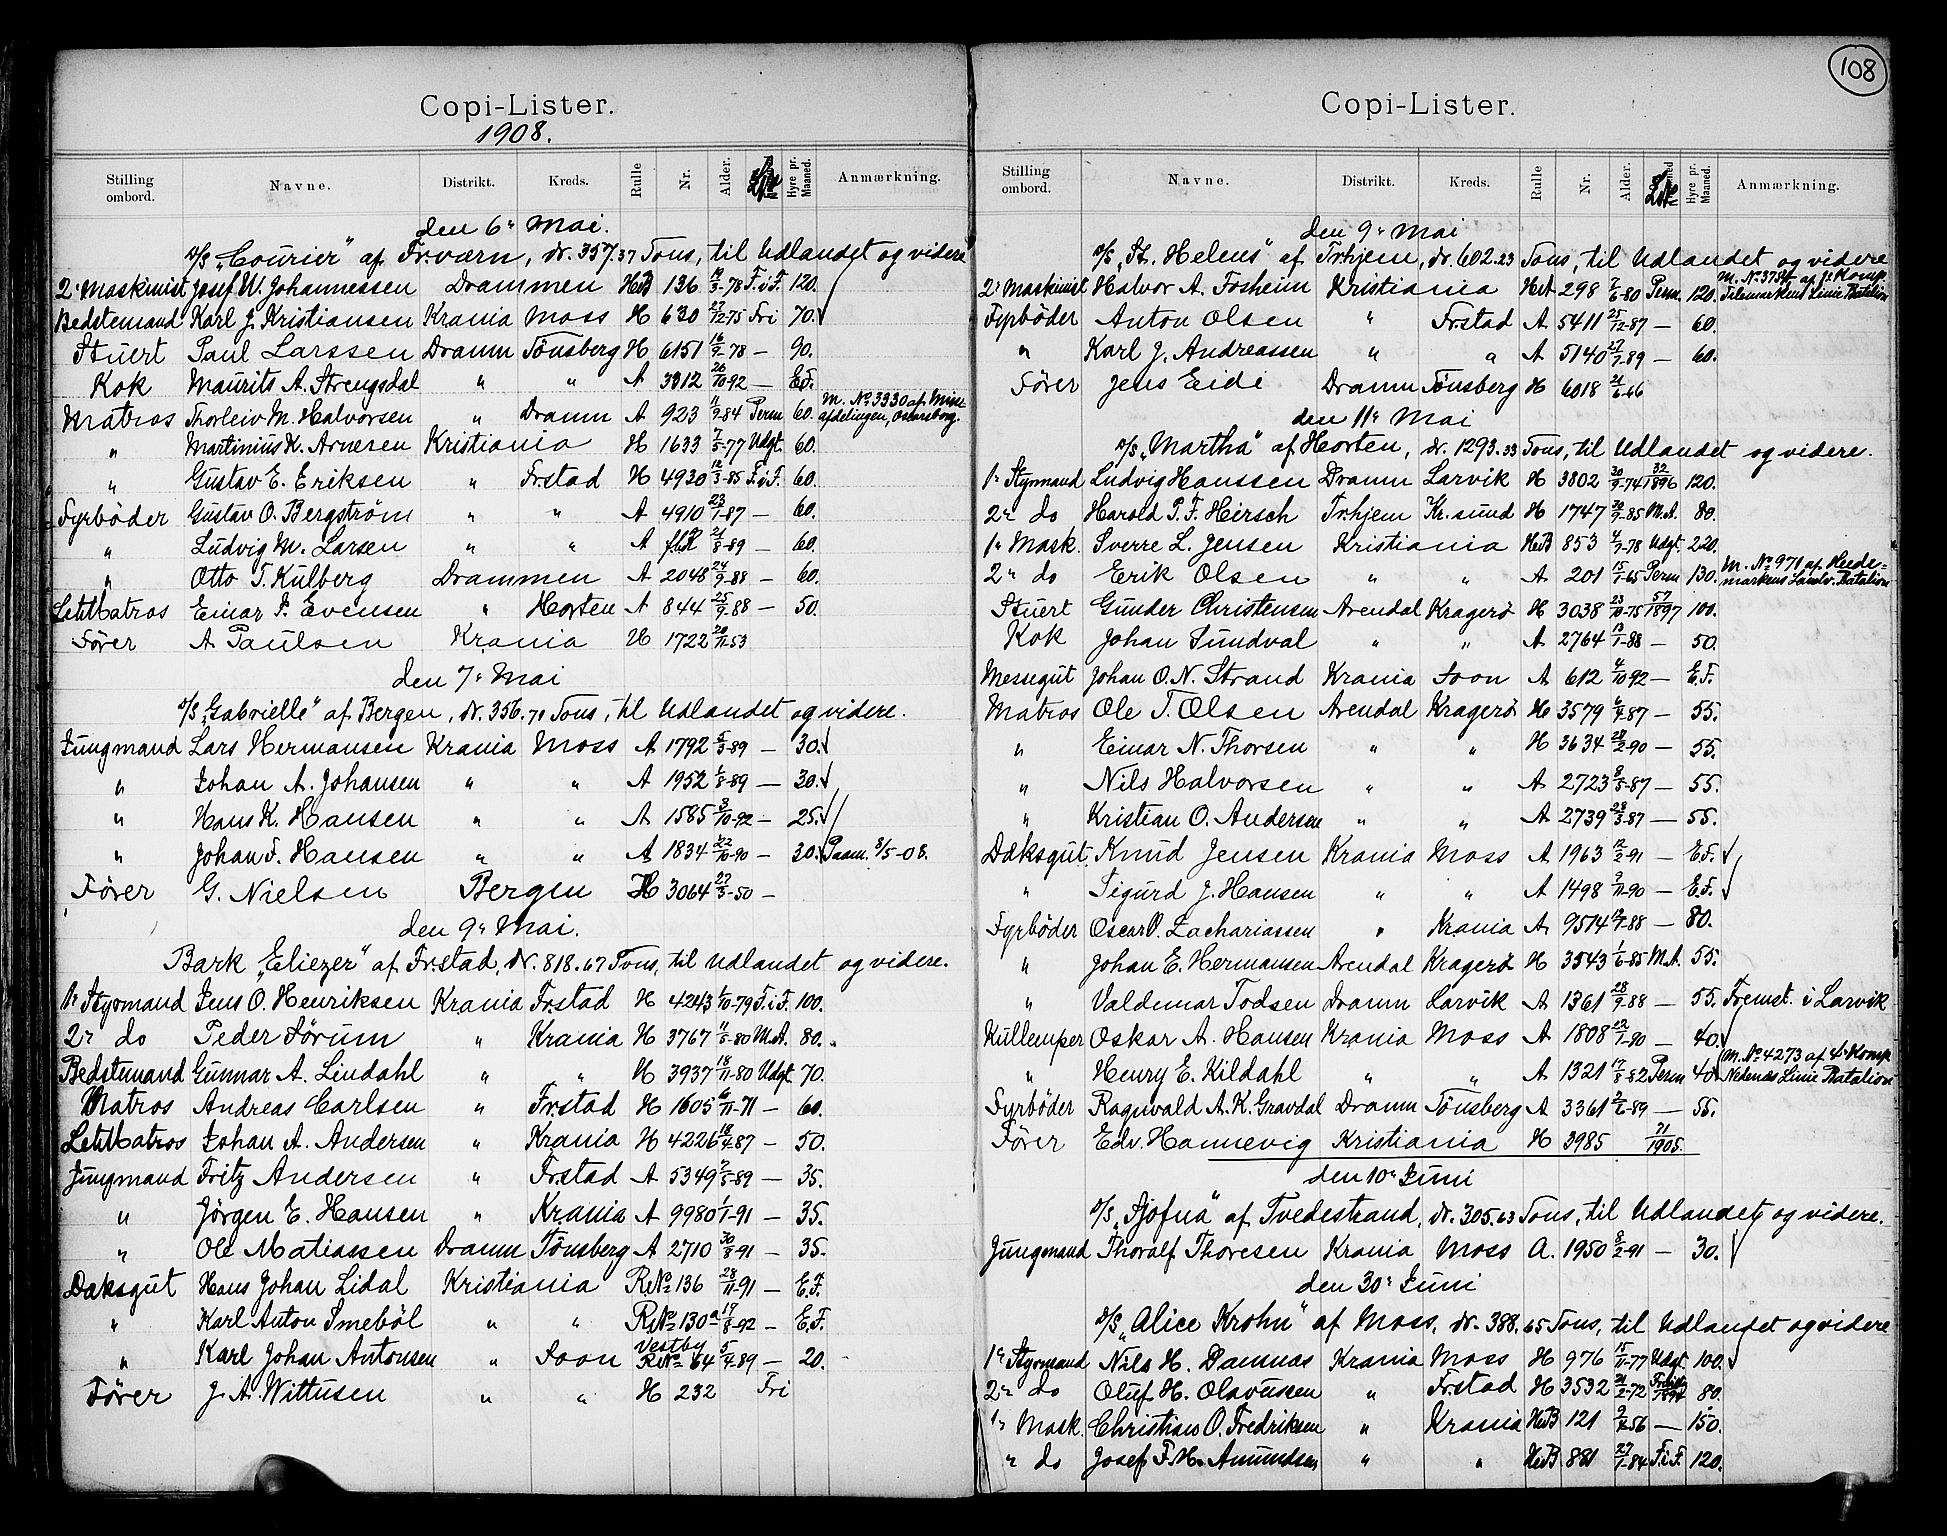 108
Copi-Lister.
1908.
Stilling ombord. Navne. Distrikt. Kreds. Rulle Nr. Alder. Hyre pr. Maaned. Anmærkning.
den 6' Mai.
D/S "Courier" af Fr.værn, dr. 357.37 Tons, til Udlandet og videre
2' Maskinist Josef W. Johannessen Drammen HrB 136 -78 F.i F. 120.
Bedstemand Karl J. Kristiansen Krania Moss H 630 27/12-75 Fri 70.
Stuert Paul Larssen Dramn Tönsberg H 6151 16/9-78 — 90.
Kok Maurits A. Strengsdal " " A 3312 26/10-92 — E.F.
Matros Thorleiv M. Halvorsen " Dramn A 923 11/9-84 Perm 60. M. No 3330 af Mine afdelingen, Oscarsborg.
" Martinius K. Arnesen Kristiania H 1633 7/5-77 Udgt. 60.
" Gustav E. Eriksen " Fr.stad H 4930 12/3-85 F.i F. 60.
Fyrböder Gustav O. Bergström " " A 4910 23/1-87 — 60.
" Ludvig M. Larsen " " A 21/8-89 — 60.
" Otto T. Kulberg Drammen A 2048 24/9-88 — 60.
LetMatros Einar F. Evensen " Horten A 844 25/9-88 — 50.
Förer A Paulsen Krania H 1722 20/11-53
den 7' Mai
D/S "Gabrielle" af Bergen, dr. 356.71 Tons, til Udlandet og videre.
Jungmand Lars Hermansen Krania Moss A 1792 5/3-89 — 30.
" Johan A. Johansen " " A 1952 1/8-89 — 30.
" Hans K. Hansen " " A 1585 3/10-92 — 25.
" Johan F. Hansen " " A 1834 22/10-90 — 30. Paam. 8/5-08.
Förer G. Nielsen Bergen H 3064 27/3-50 —
den 9' Mai.
Bark "Eliezer" af Fr.stad, dr. 818.67 Tons, til Udlandet og videre.
1' Styrmand Jens O. Henriksen Krania Fr.stad H 4243 1/10-79 F.i F. 100.
2' do Peder Sörum " Krania H 3767 11/5-80 M.A. 80.
Bedstemand Gunnar A. Lindahl " " H 3937 18/11-80 Udgt. 70.
Matros Andreas Carlsen " Fr.stad H 1605 16/11-71 — 60.
LetMatros Johan A. Andersen " Krania H 4226 18/4-87 — 50.
Jungmand Fritz Andersen " Fr.stad A 5349 2/5-89 — 35.
" Jörgen E. Hansen " Krania A 9980 1/1-91 — 35.
" Ole Matiassen Dramn Tönsberg A 2710 30/8-91 — 35.
Dæksgut Hans Johan Lidal Kristiania R.No 136 28/11-91 — E.F.
" Karl Anton Smeböl " " R.No 130a 19/8-92 — E.F.
" Karl Johan Antonsen " Soon Vestby R.No 64 5/4-89 — 20.
Förer J. A. Wittusen " " H 232 Fri
Copi-Lister.
Stilling ombord. Navne. Distrikt. Kreds. Rulle Nr. Alder. Hyre pr. Maaned. Anmærkning.
den 9' Mai
D/S "St. Helens" af Tr.hjem, dr. 602.23 Tons, til Udlandet og videre
2' Maskinist Halvor A. Fosheim Kristiania HrA 298 7/6-80 Perm. 120. M. No 3754 af 1' Komp. Telemarkens Linie Batalion
Fyrböder Anton Olsen " Fr.stad A 5411 25/12-87 — 60.
" Karl J. Andreassen " " A 5140 27/7-89 — 60.
Förer Jens Eide Dramn Tönsberg H 6018 21/6-66
den 11' Mai
D/S "Martha" af Horten, dr. 1293.33 Tons, til Udlandet og videre.
1' Styrmand Ludvig Hanssen Dramn Larvik H 3802 30/9-74 32/1896 120.
2' do Harald P. F. Hirsch Tr.hjem Kr.sund H 1747 -85 M.A. 80.
1' Mask. Sverre L. Jensen Kristiania HrB 853 4/7-78 Udgt. 220.
2' do Erik Olsen " " A 201 15/1-65 Perm 130. M. No 971 af Hedemarkens Landv. Batalion
Stuert Gunder Christensen Arendal Kragerö H 3038 23/10-75 57/1897 100.
Kok Johan Sundval " " A 2764 13/1-88 — 50.
Messegut Johan O. N. Strand Krania Soon A 612 4/10-92 — E.F.
Matros Ole T. Olsen Arendal Kragerö H 3579 -87 — 55.
" Einar N. Thorsen " " H 3634 28/2-90 — 55.
" Nils Halvorsen " " A 2723 8/5-87 — 55.
" Kristian O. Andersen " " A 2739 28/3-87 — 55.
Dæksgut Knud Jensen Krania Moss A 1963 12/2-91 — E.F.
" Sigurd J. Hansen " " A 1498 -90 — E.F.
Fyrböder Oscar O. Zachariassen " Krania A 9514 -88 — 80.
" Johan E. Hermansen Arendal Kragerö H 3543 1/6-85 M.A. 55.
" Valdemar Todsen Dramn Larvik A 1361 28/9-88 — 55. Fremst. i Larvik
Kullemper Oskar A. Hansen Krania Moss A 1808 22/1-90 — 40.
" Henry E. Kildahl " " A 1321 17/8-82 Perm 40. M. No 4273 af 4' Komp. Nedenæs Linie Batalion
Fyrböder Ragnvald A. K. Gravdal Dramn Tönsberg A 3361 2/6-89 — 55.
Förer Edv. Hannevig Kristiania H 3985 71/1905.
den 10' Juni
D/S "Sjofna" af Tvedestrand, dr. 305.63 Tons, til Udlandet og videre.
Jungmand Thoralf Thoresen Krania Moss A. 1950 8/2-91 — 30.
den 30' Juni
D/S "Alice Krohn" af Moss, dr. 388.65 Tons, til Udlandet og videre
1' Styrmand Nils H. Damnæs Krania Moss H 976 15/11-77 Udgt. 100.
2' do Oluf H. Olavussen " Fr.stad H 3532 21/2-72 80.
1' Mask. Christian O. Fredriksen " Krania HrB 121 -56 — 150.
" do Josef F. H. Amundsen " " HrB 881 27/1-84 F.i F. 120.